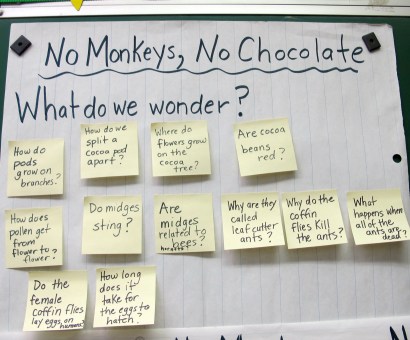 No Monkeys, No Chocolate
What do we wonder?
How do
pods
grow on
branches?
How do we
split a
cocoa pod
apart?
Where do
flowers grow
on the
cocoa
tree?
Are cocoa
beans
red?
How does
pollen get
from
flower to
flower?
Do midges
sting?
Are
midges
related to
bees?
Why are they
called
leaf cutter
ants?
Why do the
coffin
flies kill
the ants?
What
happens when
all of the
ants are
dead?
Do the
female
coffin flies
lay eggs on
humans?
How long
does it
take for
the eggs to
hatch?